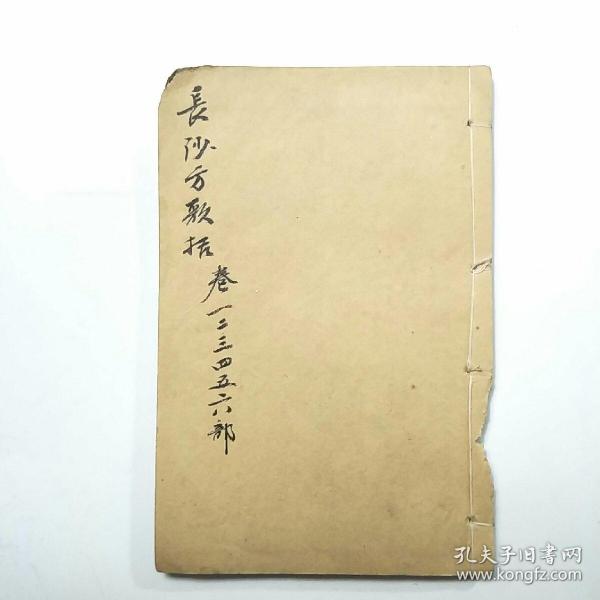 長沙方歌括
卷一二三四五六部
孔夫子旧书网
www.kongfz.com